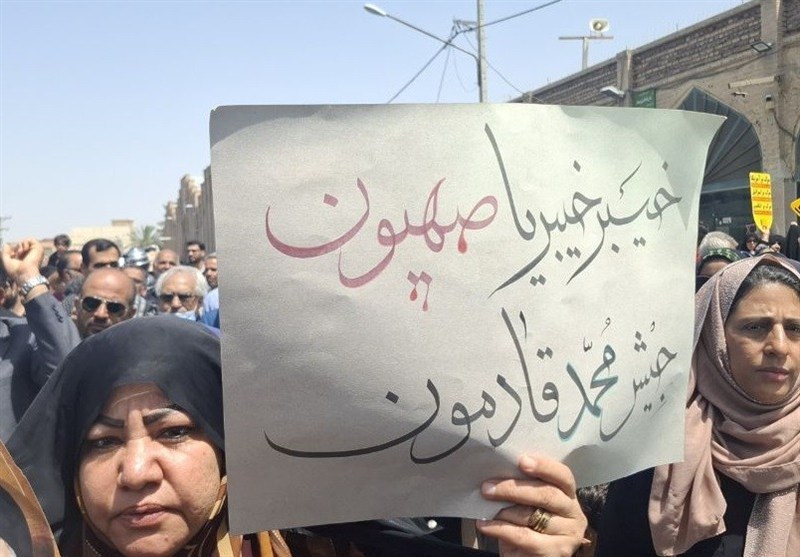 خیبر خیبر یا صهیون
جیش محمّد قادمون